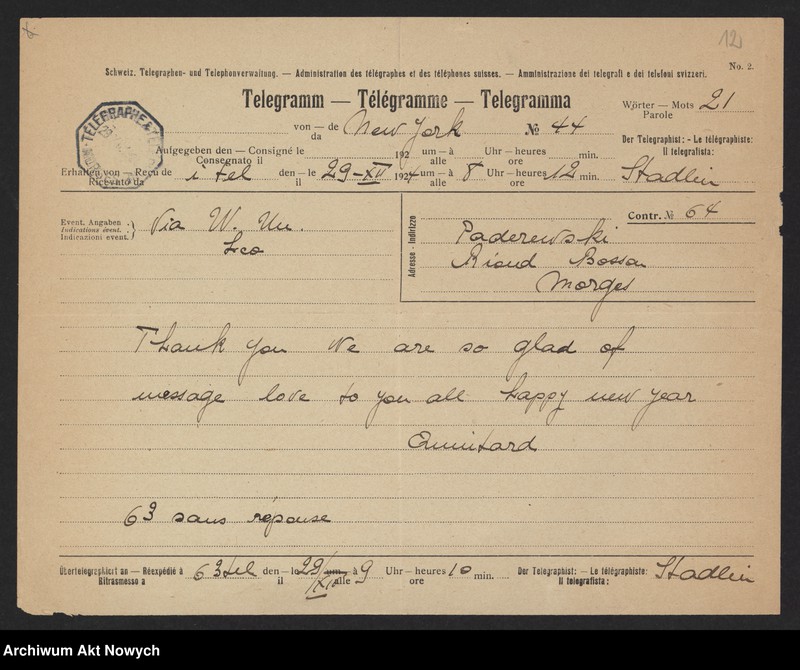 12
Schweiz. Telegraphen- und Telephonverwaltung. — Administration des télégraphes et des téléphones suisses. — Amministrazione dei telegrafi e dei telefoni svizzeri.
No. 2.
Telegramm — Télégramme — Telegramma
Wörter — Mots 21
Parole
von — de New York № 44
da
Der Telegraphist: - Le télégraphiste:
Il telegrafista:
Stadlin
Aufgegeben den — Consigné le 192 um — à Uhr — heures min.
Consegnato il alle ore
Erhalten von — Reçu de i tel den — le 29-XII 1924 um — à 8 Uhr — heures 12 min.
Ricevuto da il alle ore
TÉLÉGRAPHE
Event. Angaben
Indications évent.
Indicazioni event.
Via W. Un.
Lco
Adresse - Indirizzo
Contr. № 64
Paderewski
Riond Bosson
Morges
Thank you We are so glad of
message love to you all happy new year
Quintard
63 sans réponse
Übertelegraphiert an — Réexpédié à 63 tel den — le 29/XII um — à 9 Uhr — heures 10 min.
Ritrasmesso a il alle ore
Der Telegraphist: — Le télégraphiste:
Il telegrafista:
Stadlin
Archiwum Akt Nowych